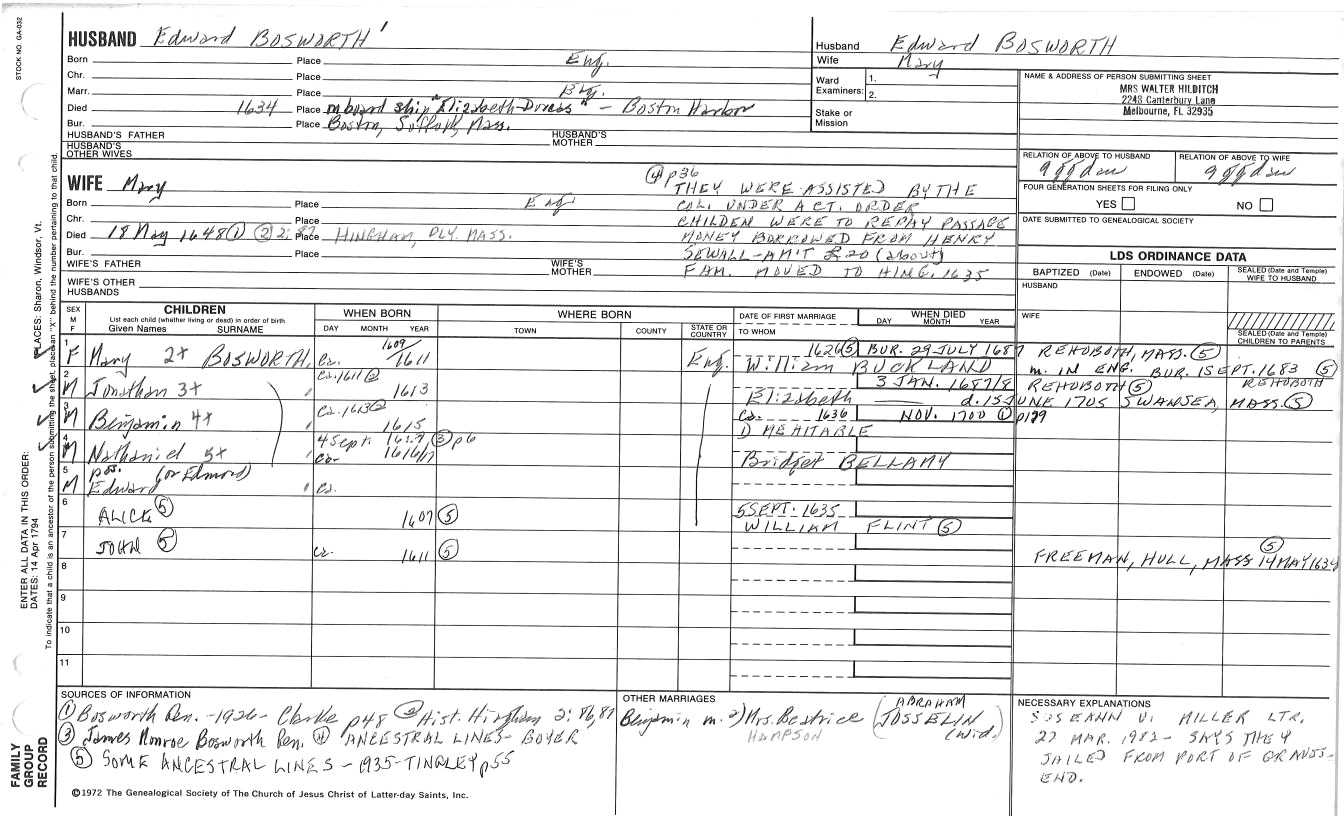 STOCK NO. GA-032
HUSBAND Edward BOSWORTH
Born Place Eng.
Chr. Place
Marr. Place Eng.
Died 1634 Place on board ship "Elizabeth Dorcas" - Boston Harbor
Bur. Place Boston, Suffolk, Mass.
HUSBAND'S FATHER HUSBAND'S MOTHER
HUSBAND'S OTHER WIVES
Husband Edward BOSWORTH
Wife Mary
Ward Examiners: 1.
2.
Stake or Mission
NAME & ADDRESS OF PERSON SUBMITTING SHEET
MRS WALTER HILDITCH
2248 Canterbury Lane
Melbourne, FL 32935
RELATION OF ABOVE TO HUSBAND RELATION OF ABOVE TO WIFE
FOUR GENERATION SHEETS FOR FILING ONLY
YES NO
DATE SUBMITTED TO GENEALOGICAL SOCIETY
WIFE Mary
Born Place Eng
Chr. Place
Died 18 May 1648 ① ② 2:87 Place HINGHAM, PLY. MASS.
Bur. Place
WIFE'S FATHER WIFE'S MOTHER
WIFE'S OTHER HUSBANDS
④ p36
THEY WERE ASSISTED BY THE
COL. UNDER ACT. ORDER
CHILDEN WERE TO REPAY PASSAGE
MONEY BORROWED FROM HENRY
SEWALL - AM'T £20 (about)
FAM. MOVED TO HING. 1635
LDS ORDINANCE DATA
BAPTIZED (Date) ENDOWED (Date) SEALED (Date and Temple) WIFE TO HUSBAND
HUSBAND
WIFE
SEALED (Date and Temple) CHILDREN TO PARENTS
SEX M F
CHILDREN
List each child (whether living or dead) in order of birth
Given Names SURNAME
WHEN BORN
DAY MONTH YEAR
WHERE BORN
TOWN COUNTY STATE OR COUNTRY
DATE OF FIRST MARRIAGE
TO WHOM
WHEN DIED
DAY MONTH YEAR
1 F Mary 2x BOSWORTH Ca. 1609/1611 Eng. 1626 ⑤ BUR. 29 JULY 1687 REHOBOTH, MASS. ⑤
William BUCKLAND m. IN ENG. BUR. 1 SEPT. 1683 ⑤ REHOBOTH
2 M Jonathan 3x Ca. 1611 ② 1613 3 JAN. 1687/8 REHOBOTH ⑤
Elizabeth d. 15 JUNE 1705 SWANSEA, MASS. ⑤
3 M Benjamin 4x Ca. 1613 ② 1615 Ca. 1636 NOV. 1700 ①
1) MEHITABLE
4 M Nathaniel 5x 4 Sept. 1617 ③ p6
Ca. 1616/17
Bridget BELLAMY
5 M pos. Edward (or Edmond) Ca.
6 ALICE ⑤ 1607 ⑤ 5 SEPT. 1635
WILLIAM FLINT ⑤
7 JOHN ⑤ Ca. 1611 ⑤ FREEMAN, HULL, MASS 14 MAY 1634 ⑤
8
9
10
11
SOURCES OF INFORMATION
① Bosworth Gen. - 1926 - Clarke p48 ② Hist. Hingham 2:86,87
③ James Monroe Bosworth Gen. ④ ANCESTRAL LINES - BOYER
⑤ SOME ANCESTRAL LINES - 1935 - TINGLEY p55
OTHER MARRIAGES
Benjamin m. 2) Mrs. Beatrice HAMPSON (ABRAHAM JOSSELIN Wid.)
NECESSARY EXPLANATIONS
MILLER LTR.
22 MAR. 1982 - SAYS THEY
SAILED FROM PORT OF GRAVES-
END.
©1972 The Genealogical Society of The Church of Jesus Christ of Latter-day Saints, Inc.
FAMILY GROUP RECORD
ENTER ALL DATA IN THIS ORDER:
DATES: 14 Apr 1794
PLACES: Sharon, Windsor, Vt.
To indicate that a child is an ancestor of the person submitting the sheet, place an "X" behind the number pertaining to that child.